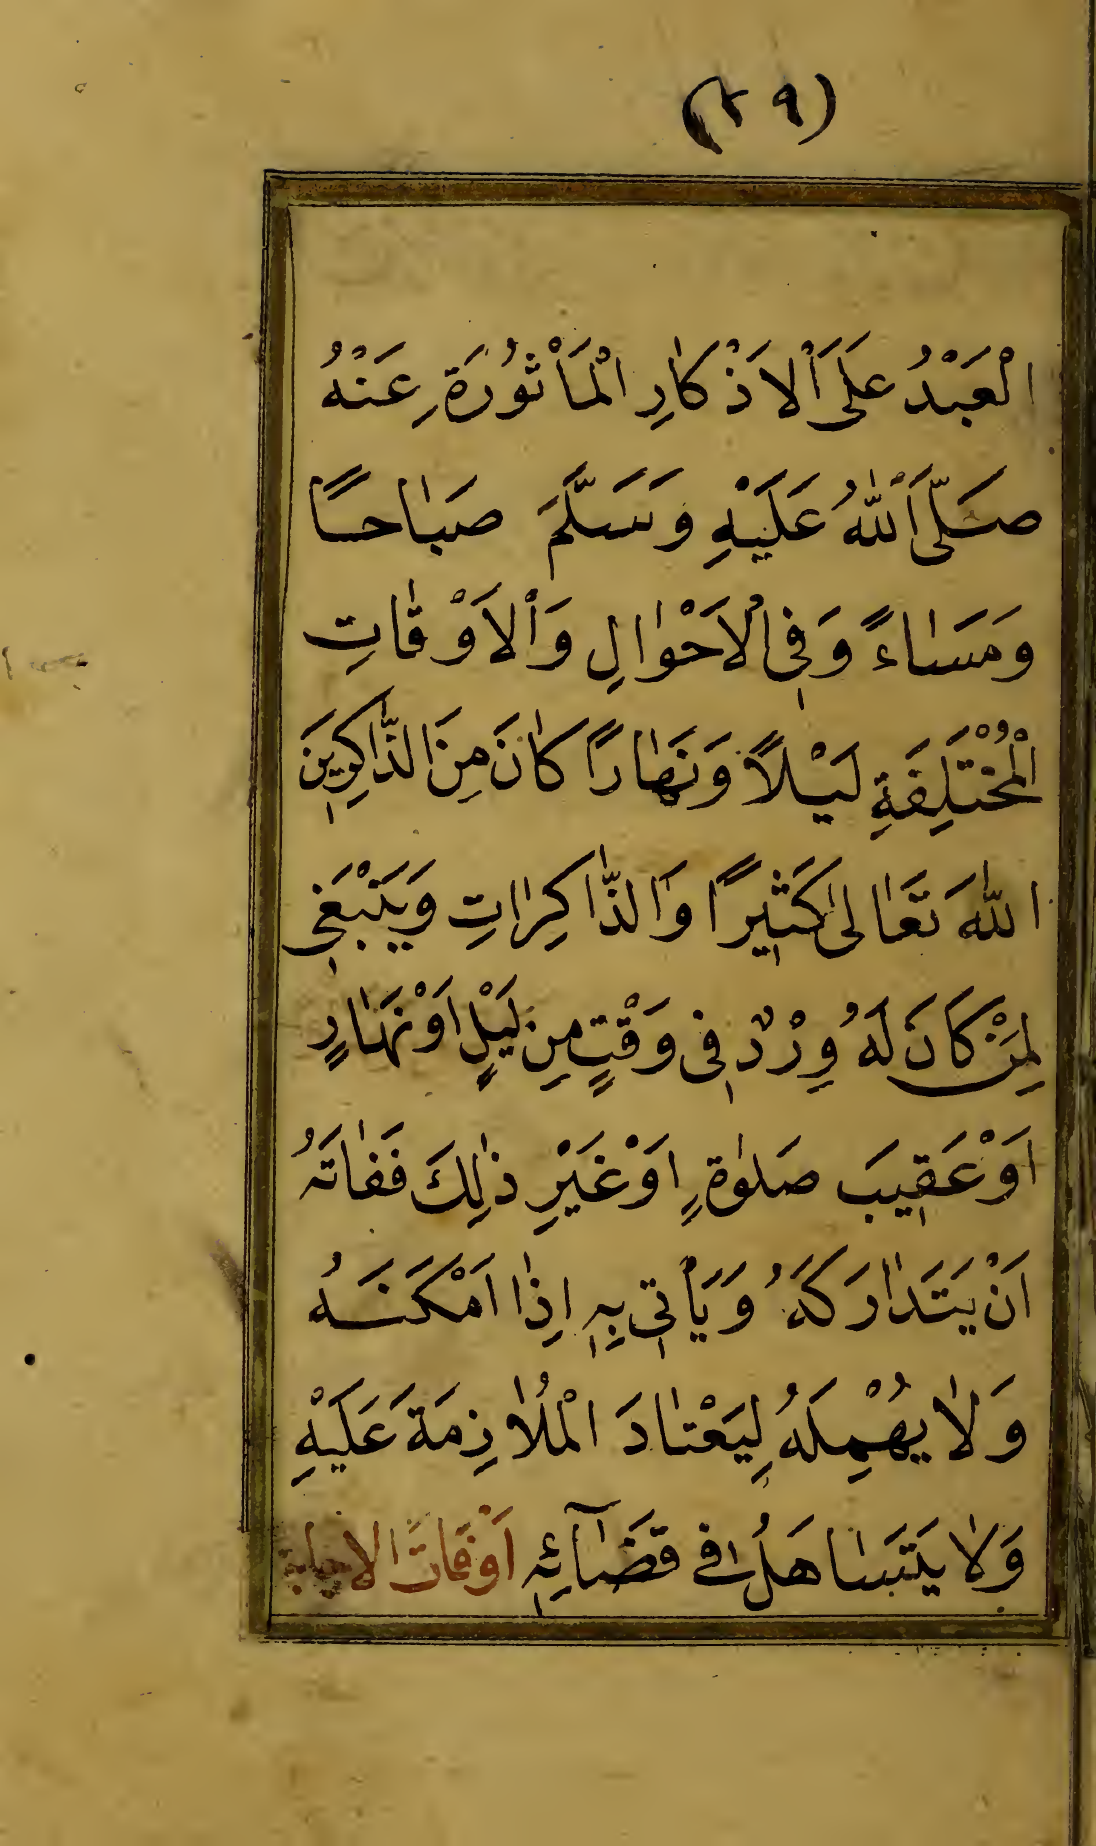 (٢٩)
الْعَبْدُ عَلَى الْاَذْكَارِ الْمَأْثُورَةِ عَنْهُ
صَلَّى اللّٰهُ عَلَيْهِ وَسَلَّمَ صَبَاحًا
وَمَسَاءً وَفِي الْاَحْوَالِ وَالْاَوْقَاتِ
الْمُخْتَلِفَةِ لَيْلًا وَنَهَارًا كَانَ مِنَ الذَّاكِرِينَ
اللّٰهَ تَعَالٰى كَثِيرًا وَالذَّاكِرَاتِ وَيَنْبَغِي
لِمَنْ كَانَ لَهُ وِرْدٌ فِي وَقْتٍ مِنْ لَيْلٍ اَوْ نَهَارٍ
اَوْ عَقِيبَ صَلٰوةٍ اَوْ غَيْرِ ذٰلِكَ فَفَاتَهُ
اَنْ يَتَدَارَكَهُ وَيَأْتِي بِهِ اِذَا اَمْكَنَهُ
وَلَا يُهْمِلَهُ لِيَعْتَادَ الْمُلَازِمَةَ عَلَيْهِ
وَلَا يَتَسَاهَلُ فِي قَضَآئِهِ اَوْقَاتُ الاجابة